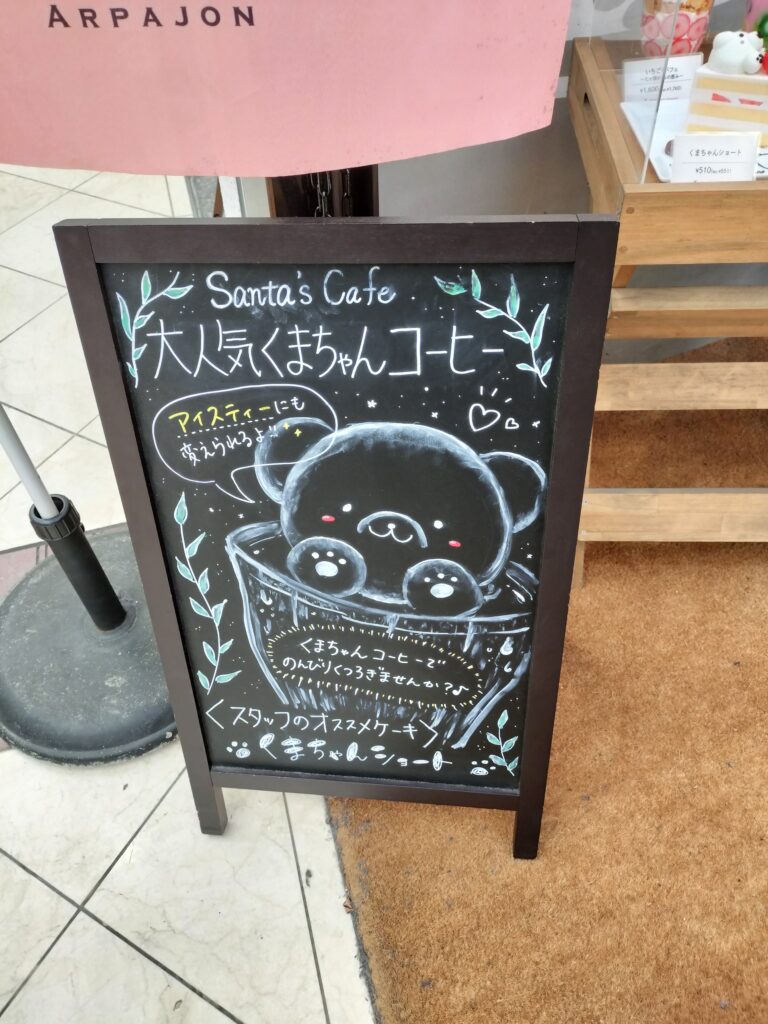 ARPAJON
くまちゃんショート
¥510
Santa's Cafe
大人気くまちゃんコーヒー
アイスティーにも
変えられるよ!!
くまちゃんコーヒーで
のんびりくつろぎませんか?♪
<スタッフのオススメケーキ>
くまちゃんショート